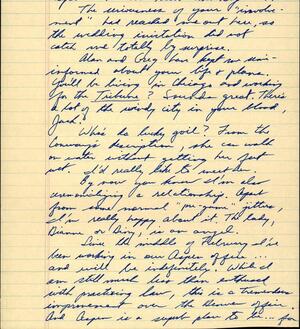 The seriousness of your "involve-
ment" had reached me out here, so
the wedding invitation did not
catch me totally by surprise.
Alan and Greg have kept me semi-
informed about your life & plans.
You'll be living in Chicago and working
for the Tribune? Sounds great. There's
a lot of the windy city in your blood,
Jack!
Who's the lucky goil? From the
Conway's description, she can walk
on water without getting her feet
wet. I'd really like to meet her.
By now you know I'm also
a relationship. Aside
from some normal jitters,
I'm really happy about it. The lady,
Dianne or Diny, is an angel.
Since the middle of February I've
been working in our Aspen office ...
and will be indefinitely. While I
am still much less than enthused
with practicing law, this is a tremendous
improvement over the Denver office.
And Aspen is a superb place to be ... for